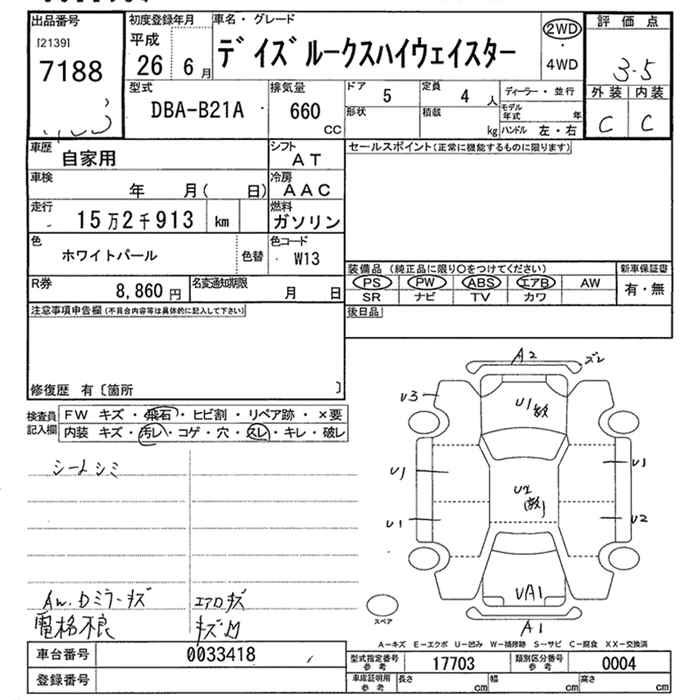 出品番号 初度登録年月 車名・グレード 評価点
[2139] 平成 2WD
7188 26 6月 デイズルークスハイウェイスター ・ 3.5
4WD
型式 排気量 ドア 定員 ディーラー・並行 外装 内装
DBA-B21A 660 5 4 人 モデル年式 年 C C
CC 形状 積載 kg ハンドル 左・右
車歴 自家用 シフト AT セールスポイント(正常に機能するものに限ります)
車検 年 月( 日) 冷房 AAC
走行 15万2千913 km 燃料 ガソリン
色 ホワイトパール 色替 色コード W13
装備品(純正品に限り○をつけてください) 新車保証書
R券 8,860円 名変通知期限 月 日 PS PW ABS エアB AW 有・無
SR ナビ TV カワ
注意事項申告欄(不具合内容等は具体的に記入して下さい) 後日品
修復歴 有〔箇所 〕
検査員記入欄 FW キズ・飛石・ヒビ割・リペア跡・×要
内装 キズ・汚レ・コゲ・穴・スレ・キレ・破レ
A2 ズレ
U3 U1 数
シートシミ
U1 U1
U2 (数)
U1 U2
AW.Dミラーキズ エアロキズ
電格不良 キズ凹
UA1
スペア A1
A-キズ E-エクボ U-凹み W-補修跡 S-サビ C-腐食 XX-交換済
車台番号 0033418 型式指定番号 参考 17703 類別区分番号 参考 0004
登録番号 車庫証明用 参考 長さ cm 幅 cm 高さ cm